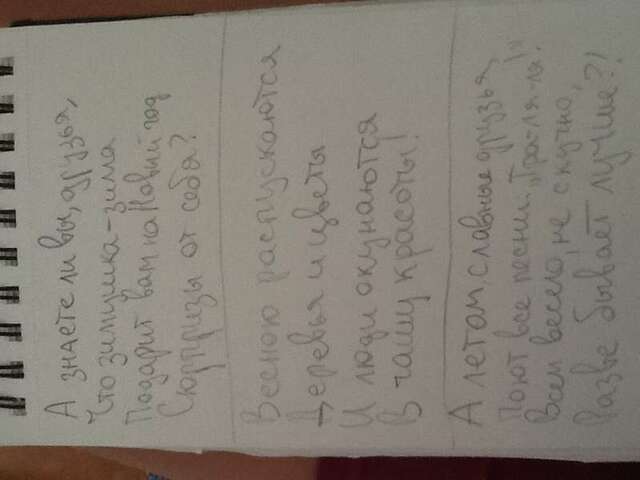 А знаете ли вы, друзья,
Что зимушка-зима
Подарит вам на Новый год
Сюрпризы от себя?
Весною распускаются
Деревья и цветы
И люди окунаются
В чашу красоты!
А летом, славные друзья,
Поют все песни: „Тра-ля-ля!"
Всем весело, не скучно,
Разве бывает лучше?!